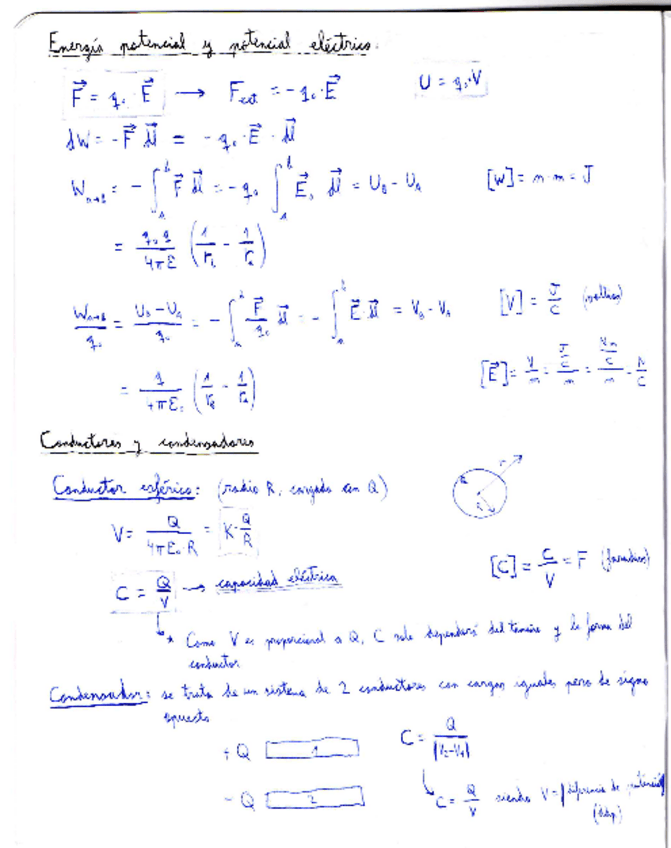 Energía potencial y potencial eléctrico.
F⃗ = q₀ · E⃗ → F_ext = -q₀ · E⃗    U = q₀ · V
dW = -F⃗ dl⃗ = -q₀ · E⃗ · dl⃗
W_A→B = -∫_A^B F⃗ dl⃗ = -q₀ ∫_A^B E⃗ · dl⃗ = U_B - U_A    [W] = N·m = J
= q₀q/4πε (1/r_B - 1/r_A)
W_A→B/q₀ = U_B - U_A/q₀ = -∫_A^B F⃗/q₀ dl⃗ = -∫_A^B E⃗·dl⃗ = V_B - V_A    [V] = J/C (voltios)
[E⃗] = V/m = J/C/m = N m/C/m = N/C
= q/4πε₀ (1/r_B - 1/r_A)
Conductores y condensadores
Conductor esférico: (radio R, cargado con Q)
R r
V = Q/4πε₀·R = K·Q/R
[C] = C/V = F (faradios)
C = Q/V → capacidad eléctrica
* Como V es proporcional a Q, C solo dependerá del tamaño y la forma del
conductor
Condensador: se trata de un sistema de 2 conductores con cargas iguales pero de signo
opuesto
+Q 1    C = Q/|V₂-V₁|
-Q 2    C = Q/V siendo V = |diferencia de potencial|
(ddp)